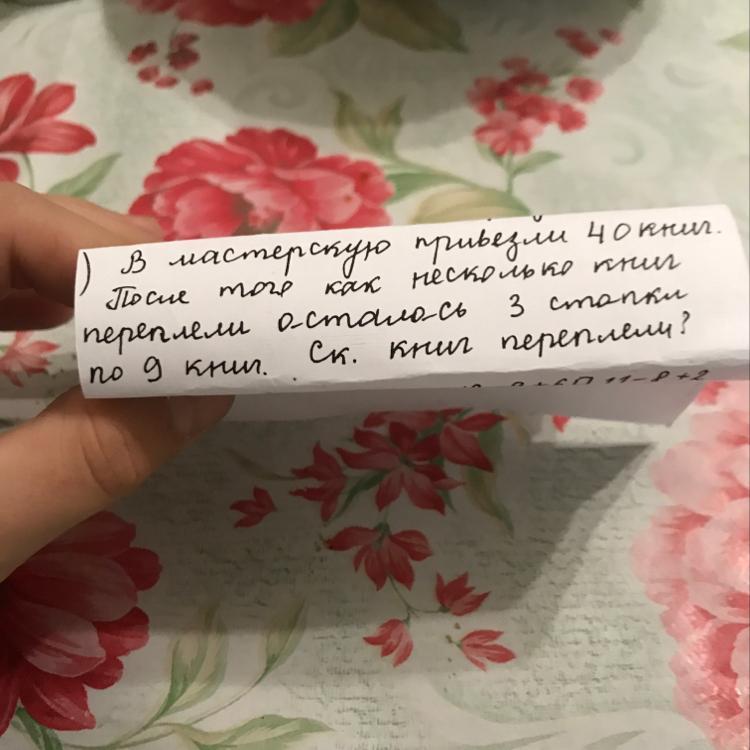 ) В мастерскую привезли 40 книг.
После того как несколько книг
переплели осталось 3 стопки
по 9 книг. Ск. книг переплели?